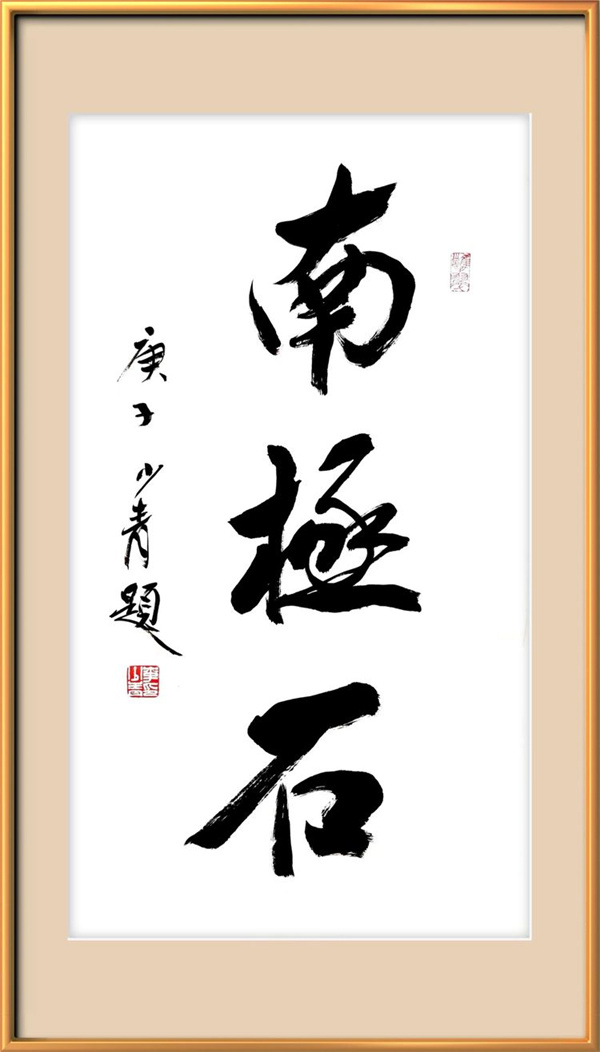 南極石
庚子少青題